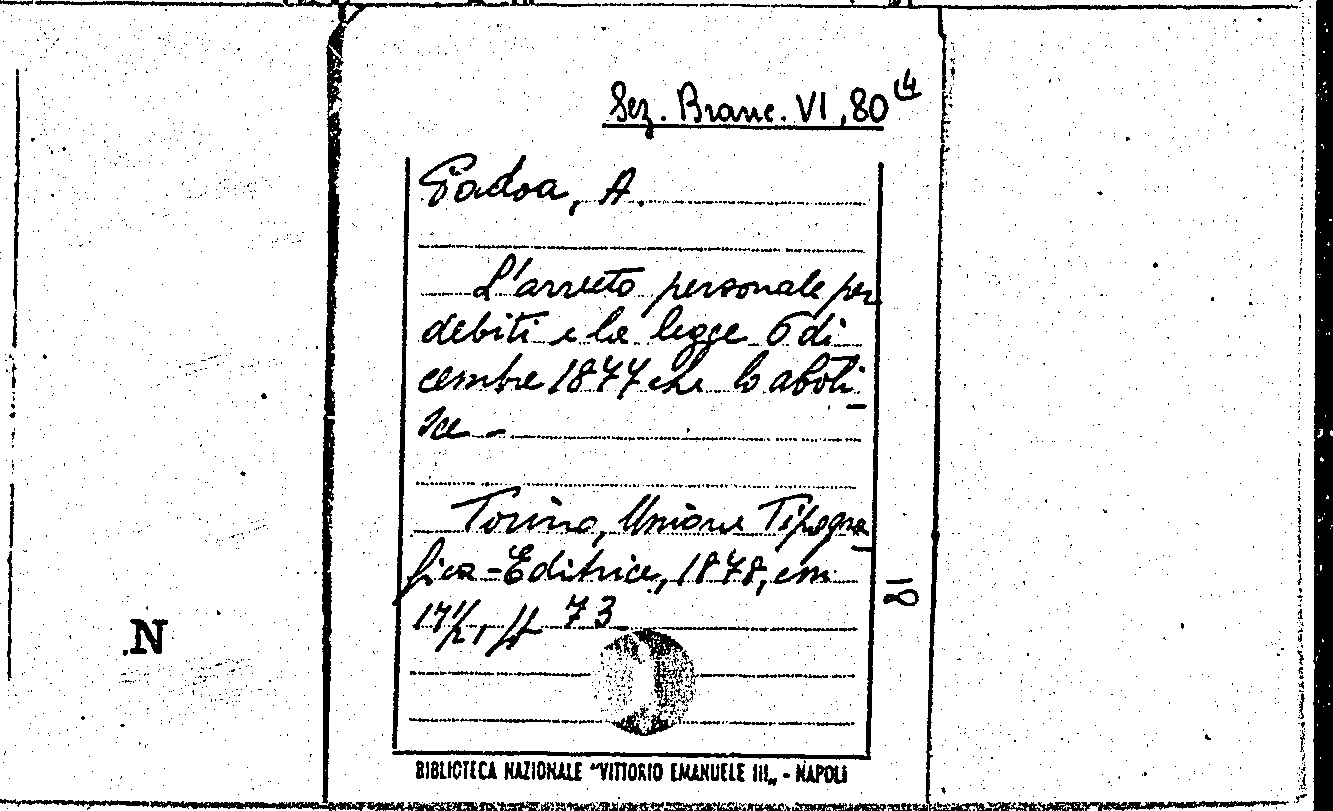 Sez. Branc. VI, 80 (4
Padoa, A.
L'arresto personale per
debiti e la legge 6 di
cembre 1877 che lo aboli-
sce -
Torino, Unione Tipogra-
fica-Editrice, 1878, cm
17½, ff 73
18
N
BIBLIOTECA NAZIONALE "VITTORIO EMANUELE III„ - NAPOLI